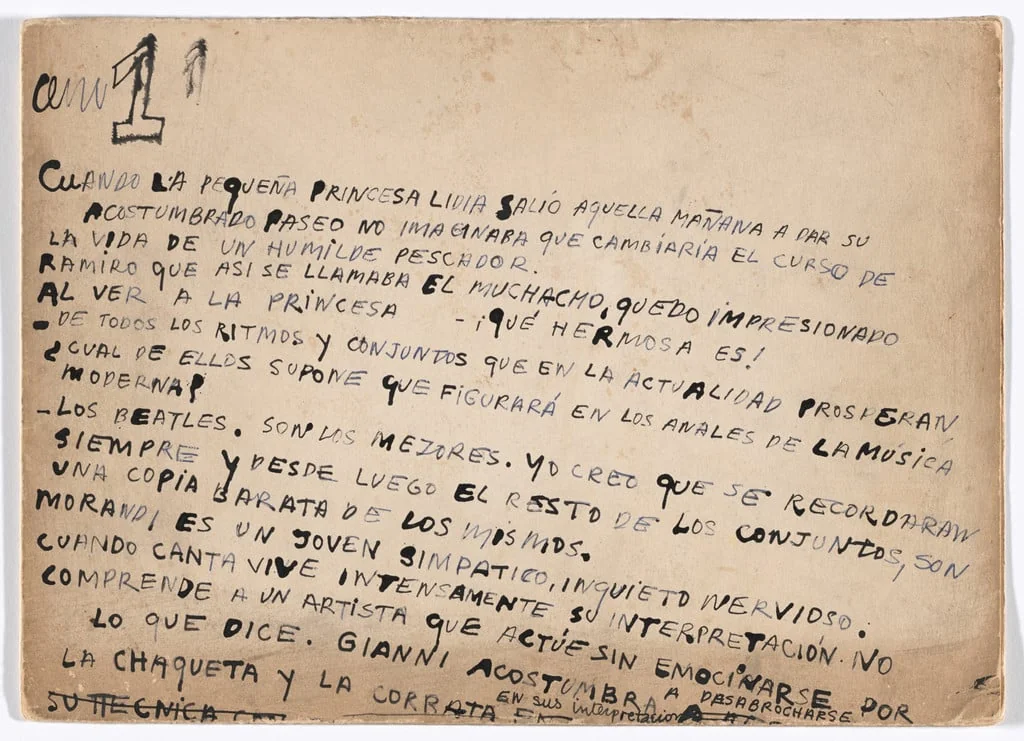 1
CUANDO LA PEQUEÑA PRINCESA LIDIA SALIÓ AQUELLA MAÑANA A DAR SU
ACOSTUMBRADO PASEO NO IMAGINABA QUE CAMBIARÍA EL CURSO DE
LA VIDA DE UN HUMILDE PESCADOR.
RAMIRO QUE ASI SE LLAMABA EL MUCHACHO, QUEDO IMPRESIONADO
AL VER A LA PRINCESA - ¡QUÉ HERMOSA ES!
- DE TODOS LOS RITMOS Y CONJUNTOS QUE EN LA ACTUALIDAD PROSPERAN
¿CUAL DE ELLOS SUPONE QUE FIGURARÁ EN LOS ANALES DE LA MÚSICA
MODERNA?
- LOS BEATLES. SON LOS MEZORES. YO CREO QUE SE RECORDARAN
SIEMPRE Y DESDE LUEGO EL RESTO DE LOS CONJUNTOS, SON
UNA COPIA BARATA DE LOS MISMOS.
MORANDI ES UN JOVEN SIMPATICO, INQUIETO NERVIOSO.
CUANDO CANTA VIVE INTENSAMENTE SU INTERPRETACIÓN. NO
COMPRENDE A UN ARTISTA QUE ACTÚE SIN EMOCINARSE POR
LO QUE DICE. GIANNI ACOSTUMBRA A DESABROCHARSE
LA CHAQUETA Y LA CORRATA EN sus interpretacion
SU TECNICA